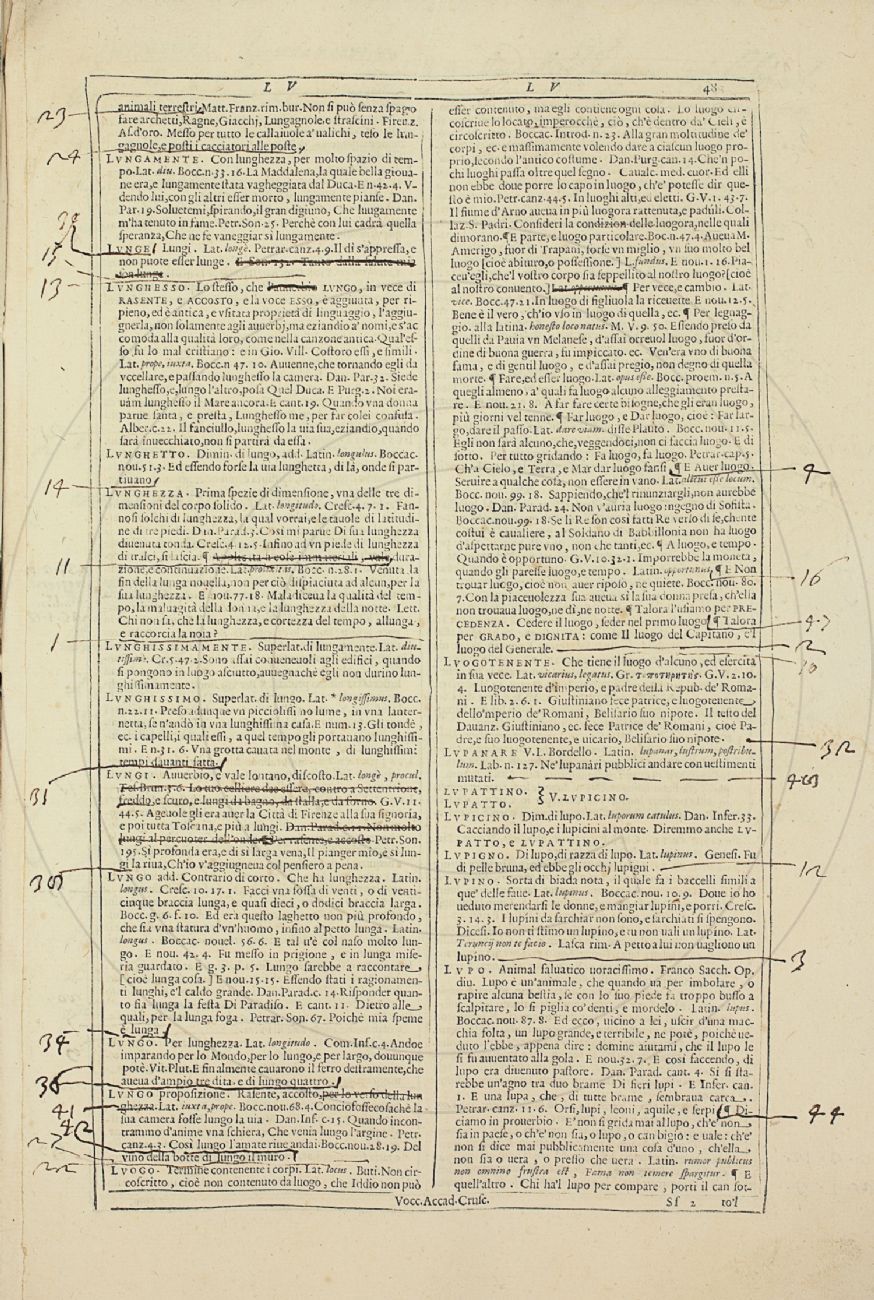 L V
L V
48
animali terrestri. Matt. Franz. rim. bur. Non si può senza spago
fare archetti, Ragne, Giacchj, Lungagnole, e strascini. Firenz.
As. d'oro. Messo per tutto le callaiuole a' ualichi, teso le lun-
gagnole, e posti i cacciatori alle poste,
LVNGAMENTE. Con lunghezza, per molto spazio di tem-
po. Lat. diu. Bocc. n. 33. 16. La Maddalena, la quale bella gioua-
ne era, e lungamente stata vagheggiata dal Duca. E n. 42. 4. V-
dendo lui, con gli altri esser morto, lungamente pianse. Dan.
Par. 19. Soluetemi, spirando, il gran digiuno, Che lungamente
m'ha tenuto in fame. Petr. Son. 25. Perchè con lui cadrà quella
speranza, Che ne fè vaneggiar sì lungamente.
LVNGE, Lungi. Lat. longè. Petrar. canz. 4. 9. Il dì s'appressa, e
non puote esser lunge. E Son. 252. Tanto dalla salute mia
son lunge.
LVNGHESSO. Lo stesso, che LVNGO, in vece di
RASENTE, e ACCOSTO, e la voce ESSO, è aggiunta, per ri-
pieno, ed è antica, e vsitata proprietà di linguaggio, l'aggiu-
gnerla, non solamente agli auuerbj, ma eziandio a' nomi, e s'ac
comoda alla qualità loro, come nella canzone antica. Qual'es-
so fu lo mal cristiano: e in Gio. Vill. Costoro essi, e simili.
Lat. prope, iuxta. Bocc. n. 47. 10. Auuenne, che tornando egli da
vccellare, e passando lunghesso la camera. Dan. Par. 32. Siede
lunghesso, e, lungo l'altro, posa Quel Duca. E Purg. 2. Noi era-
uam lunghesso il Mare ancora. E cant. 19. Quando vna donna
parue santa, e presta, Lunghesso me, per far colei confusa.
Alber. c. 22. Il fanciullo, lunghesso la uia sua, eziandio, quando
sarà inuecchiato, non si partirà da essa.
LVNGHETTO. Dimin. di lungo, add. Latin. longulus. Boccac.
nou. 51. 3. Ed essendo forse la uia lunghetta, di là, onde si par-
tiuano,
LVNGHEZZA. Prima spezie di dimensione, vna delle tre di-
mensioni del corpo solido. Lat. longitudo. Cresc. 4. 7. 1. Fan-
nosi solchi di lunghezza, la qual vorrai, e le tauole di latitudi-
ne di tre piedi. Dan. Parad. 3. Così mi parue Di sua lunghezza
diuenuta tonda. Cresc. 4. 12. 5. Infino ad vn piede di lunghezza
zione, e continuazione. Bocc. n. 28. 1. Venuta la
fin della lunga nouella, non perciò dispiaciuta ad alcun, per la
sua lunghezza. E nou. 77. 18. Maladiceua la qualità del tem-
po, la maluagità della donna, e la lunghezza della notte. Lett.
Chi non sa, che la lunghezza, e cortezza del tempo, allunga,
e raccorcia la noia?
LVNGHISSIMAMENTE. Superlat. di lungamente. Lat. diu-
tissimè. Cr. 5. 47. 2. Sono assai conueneuoli agli edifici, quando
si pongono in luogo asciutto, auuegnachè egli non durino lun-
ghissimamente.
LVNGHISSIMO. Superlat. di lungo. Lat. * longissimus. Bocc.
n. 22. 11. Preso adunque vn picciolissimo lume, in vna lanter-
netta, se n'andò in vna lunghissina casa. E num. 13. Gli tondè,
ec. i capelli, i quali essi, a quel tempo gli portauano lunghissi-
mi. E n. 31. 6. Vna grotta cauata nel monte, di lunghissimi
tempi dauanti fatta.
LVNGI. Auuerbio, e vale lontano, discosto. Lat. longè, procul.
freddo, e scuro, e lungi da bagno, da stalla, e da forno. G. V. 11.
44. 5. Ageuole gli era auer la Città di Firenze alla sua signoria,
e poi tutta Toscana, e più a lungi. Dan. Parad. c. 11. Non molto
lungi al percuoter dell'onde. Per rasente, e accosto. Petr. Son.
195. Sì profonda era, e di sì larga vena, Il pianger mio, e sì lun-
gi la riua, Ch'io v'aggiugneua col pensiero a pena.
LVNGO add. Contrario di corto. Che ha lunghezza. Latin.
longus. Cresc. 10. 17. 1. Facci vna fossa di venti, o di venti-
cinque braccia lunga, e quasi dieci, o dodici braccia larga.
Bocc. g. 6. f. 10. Ed era questo laghetto non più profondo,
che sia vna statura d'vn'huomo, infino al petto lunga. Latin.
longus. Boccac. nouel. 56. 6. E tal v'è col naso molto lun-
go. E nou. 42. 4. Fu messo in prigione, e in lunga mise-
ria guardato. E g. 3. p. 5. Lungo sarebbe a raccontare
[cioè lunga cosa.] E nou. 15. 15. Essendo stati i ragionamen-
ti lunghi, e 'l caldo grande. Dan. Parad. c. 14. Risponder quan-
to sia lunga la festa Di Paradiso. E cant. 11. Dietro alle
quali, per la lunga foga. Petrar. Son. 67. Poichè mia speme
è lunga
LVNGO. Per lunghezza. Lat. longitudo. Com. Inf. c. 4. Andoe
imparando per lo Mondo, per lo lungo, e per largo, douunque
potè. Vit. Plut. E finalmente cauarono il ferro destramente, che
aueua d'ampio tre dita, e di lungo quattro.
LVNGO proposizione. Rasente, accosto, per lo verso della lun
ghezza. Lat. iuxta, prope. Bocc. nou. 68. 4. Conciofossecosachè la
sua camera fosse lungo la uia. Dan. Inf. c. 15. Quando incon-
trammo d'anime vna schiera, Che venia lungo l'argine. Petr.
canz. 4. 3. Così lungo l'amate riue andai. Bocc. nou. 28. 19. Del
vino della botte di lungo il muro.
LVOGO. Termine contenente i corpi. Lat. locus. Buti. Non cir-
coscritto, cioè non contenuto da luogo, che Iddio non può
esser contenuto, ma egli contiene ogni cosa. Lo luogo cir-
coscriue lo locato, imperocchè, ciò, ch'è dentro da' Cieli, è
circoscritto. Boccac. Introd. n. 23. Alla gran moltitudine de'
corpi, ec. e massimamente volendo dare a ciascun luogo pro-
prio, secondo l'antico costume. Dan. Purg. can. 14. Che'n po-
chi luoghi passa oltre quel segno. Caualc. med. cuor. Ed elli
non ebbe doue porre lo capo in luogo, ch'e' potesse dir que-
sto è mio. Petr. canz. 44. 5. In luoghi alti, ed eletti. G. V. 1. 43. 7.
Il fiume d'Arno aueua in più luogora rattenuta, e paduli. Col-
laz. S. Padri. Consideri la condizion delle luogora, nelle quali
dimorano. ¶ E parte, e luogo particolare. Boc. n. 47. 4. Aueua M.
Amerigo, fuor di Trapani, forse vn miglio, vn suo molto bel
luogo [cioè abituro, o possessione.] L. fundus. E nou. 1. 16. Pia-
ceu'egli, che'l vostro corpo sia seppellito al nostro luogo? [cioè
al nostro conuento.] ¶ Per vece, e cambio. Lat.
vice. Bocc. 47. 21. In luogo di figliuola la riceuette. E nou. 12. 5.
Bene è il vero, ch'io vso in luogo di quella, ec. ¶ Per legnag-
gio. alla Latina. honesto loco natus. M. V. 9. 50. Essendo preso da
quelli da Pauia vn Melanese, d'assai orreuol luogo, fuor d'or-
dine di buona guerra, fu impiccato. ec. Ven'era vno di buona
fama, e di gentil luogo, e d'assai pregio, non degno di quella
morte. ¶ Fare, ed esser luogo. Lat. opus esse. Bocc. proem. n. 5. A
quegli almeno, a' quali fa luogo alcuno alleggiamento presta-
re. E nou. 21. 8. A far fare certe bisogne, che gli eran luogo,
più giorni vel tenne. ¶ Far luogo, e Dar luogo, cioè: Far lar-
go, dare il passo. Lat. dare viam. disse Plauto. Bocc. nou. 11. 5.
Egli non sarà alcuno, che, veggendoci, non ci faccia luogo. E di
sotto. Per tutto gridando: Fa luogo, fa luogo. Petrar. cap. 5.
Ch'a Cielo, e Terra, e Mar dar luogo fansi. ¶ E Auer luogo.
Seruire a qualche cosa, non essere in vano. Lat. alicui esse locum.
Bocc. nou. 99. 18. Sappiendo, che'l rinunziargli, non aurebbe
luogo. Dan. Parad. 24. Non v'auria luogo ingegno di Sofista.
Boccac. nou. 99. 18. Se li Re son così fatti Re verso di se, chente
costui è caualiere, al Soldano di Babbillonia non ha luogo
d'aspettarne pure vno, non che tanti, ec. ¶ A luogo, e tempo.
Quando è opportuno. G. V. 10. 32. 1. Imporrebbe la moneta,
quando gli paresse luogo, e tempo. Latin. opportunus, ¶ E Non
trouar luogo, cioè non auer riposo, ne quiete. Bocc. nou. 80.
7. Con la piaceuolezza sua aueua sì la sua donna presa, ch'ella
non trouaua luogo, ne dì, ne notte. ¶ Talora l'usiamo per PRE-
CEDENZA. Cedere il luogo, seder nel primo luogo. ¶ Talora
per GRADO, e DIGNITA: come Il luogo del Capitano, e'l
luogo del Generale.
LVOGOTENENTE. Che tiene il luogo d'alcuno, ed esercita
in sua vece. Lat. vicarius, legatus. Gr. τοποτηρητής. G. V. 2. 10.
4. Luogotenente d'imperio, e padre della Repub. de' Roma-
ni. E lib. 2. 6. 1. Giustiniano fece patrice, e luogotenente
dello'mperio de' Romani, Belisario suo nipote. Il testo del
Dauanz. Giustiniano, ec. fece Patrice de' Romani, cioè Pa-
dre, e suo luogotenente, e uicario, Belisario suo nipote.
LVPANARE V. L. Bordello. Latin. lupanar, lustrum, postribu-
lum. Lab. n. 127. Ne' lupanàri pubblici andare con uestimenti
mutati.
LVPATTINO.
LVPATTO. } V. LVPICINO.
LVPICINO. Dim. di lupo. Lat. luporum catulus. Dan. Infer. 33.
Cacciando il lupo, e i lupicini al monte. Diremmo anche LV-
PATTO, e LVPATTINO.
LVPIGNO. Di lupo, di razza di lupo. Lat. lupinus. Genesi. Fu
di pelle bruna, ed ebbe gli occhj lupigni.
LVPINO. Sorta di biada nota, il quale fa i baccelli simili a
que' delle faue. Lat. lupinus. Boccac. nou. 10. 9. Doue io ho
ueduto merendarsi le donne, e mangiar lupini, e porri. Cresc.
3. 14. 3. I lupini da farchiar non sono, e farchiati si spengono.
Dicesi. Io non ti stimo un lupino, e tu non uali un lupino. Lat.
Teruncij non te facio. Lasca rim. A petto a lui non uagliono un
lupino.
LVPO. Animal saluatico uoracissimo. Franco Sacch. Op.
diu. Lupo è un'animale, che quando ua per imbolare, o
rapire alcuna bestia, se con lo suo piede fa troppo busso a
scalpitare, lo si piglia co' denti, e mordelo. Latin. lupus.
Boccac. nou. 87. 8. Ed ecco, uicino a lei, uscir d'una mac-
chia folta, un lupo grande, e terribile, ne potè, poichè ue-
duto l'ebbe, appena dire: domine aiutami, che il lupo le
si fu auuentato alla gola. E nou. 32. 7. E così faccendo, di
lupo era diuenuto pastore. Dan. Parad. cant. 4. Sì si sta-
rebbe un'agno tra duo brame Di fieri lupi. E Infer. can.
1. E una lupa, che, di tutte brame, sembraua carca.
Petrar. canz. 11. 6. Orsi, lupi, leoni, aquile, e serpi ¶ Di-
ciamo in prouerbio. E' non si grida mai al lupo, ch'e' non
sia in paese, o ch'e' non sia, o lupo, o can bigio: e uale: ch'e'
non si dice mai pubblicamente una cosa d'uno, ch'ella
non sia o uera, o presso che uera. Latin. rumor publicus
non omnino frustra est, Fama non temere spargitur. ¶ E
quell'altro. Chi ha'l lupo per compare, porti il can sot-
Vocc. Accad. Crusc.
Sf 2
to'l
23
24
13
14
11
1
31
34
41
4
16
10
32
12
3
44